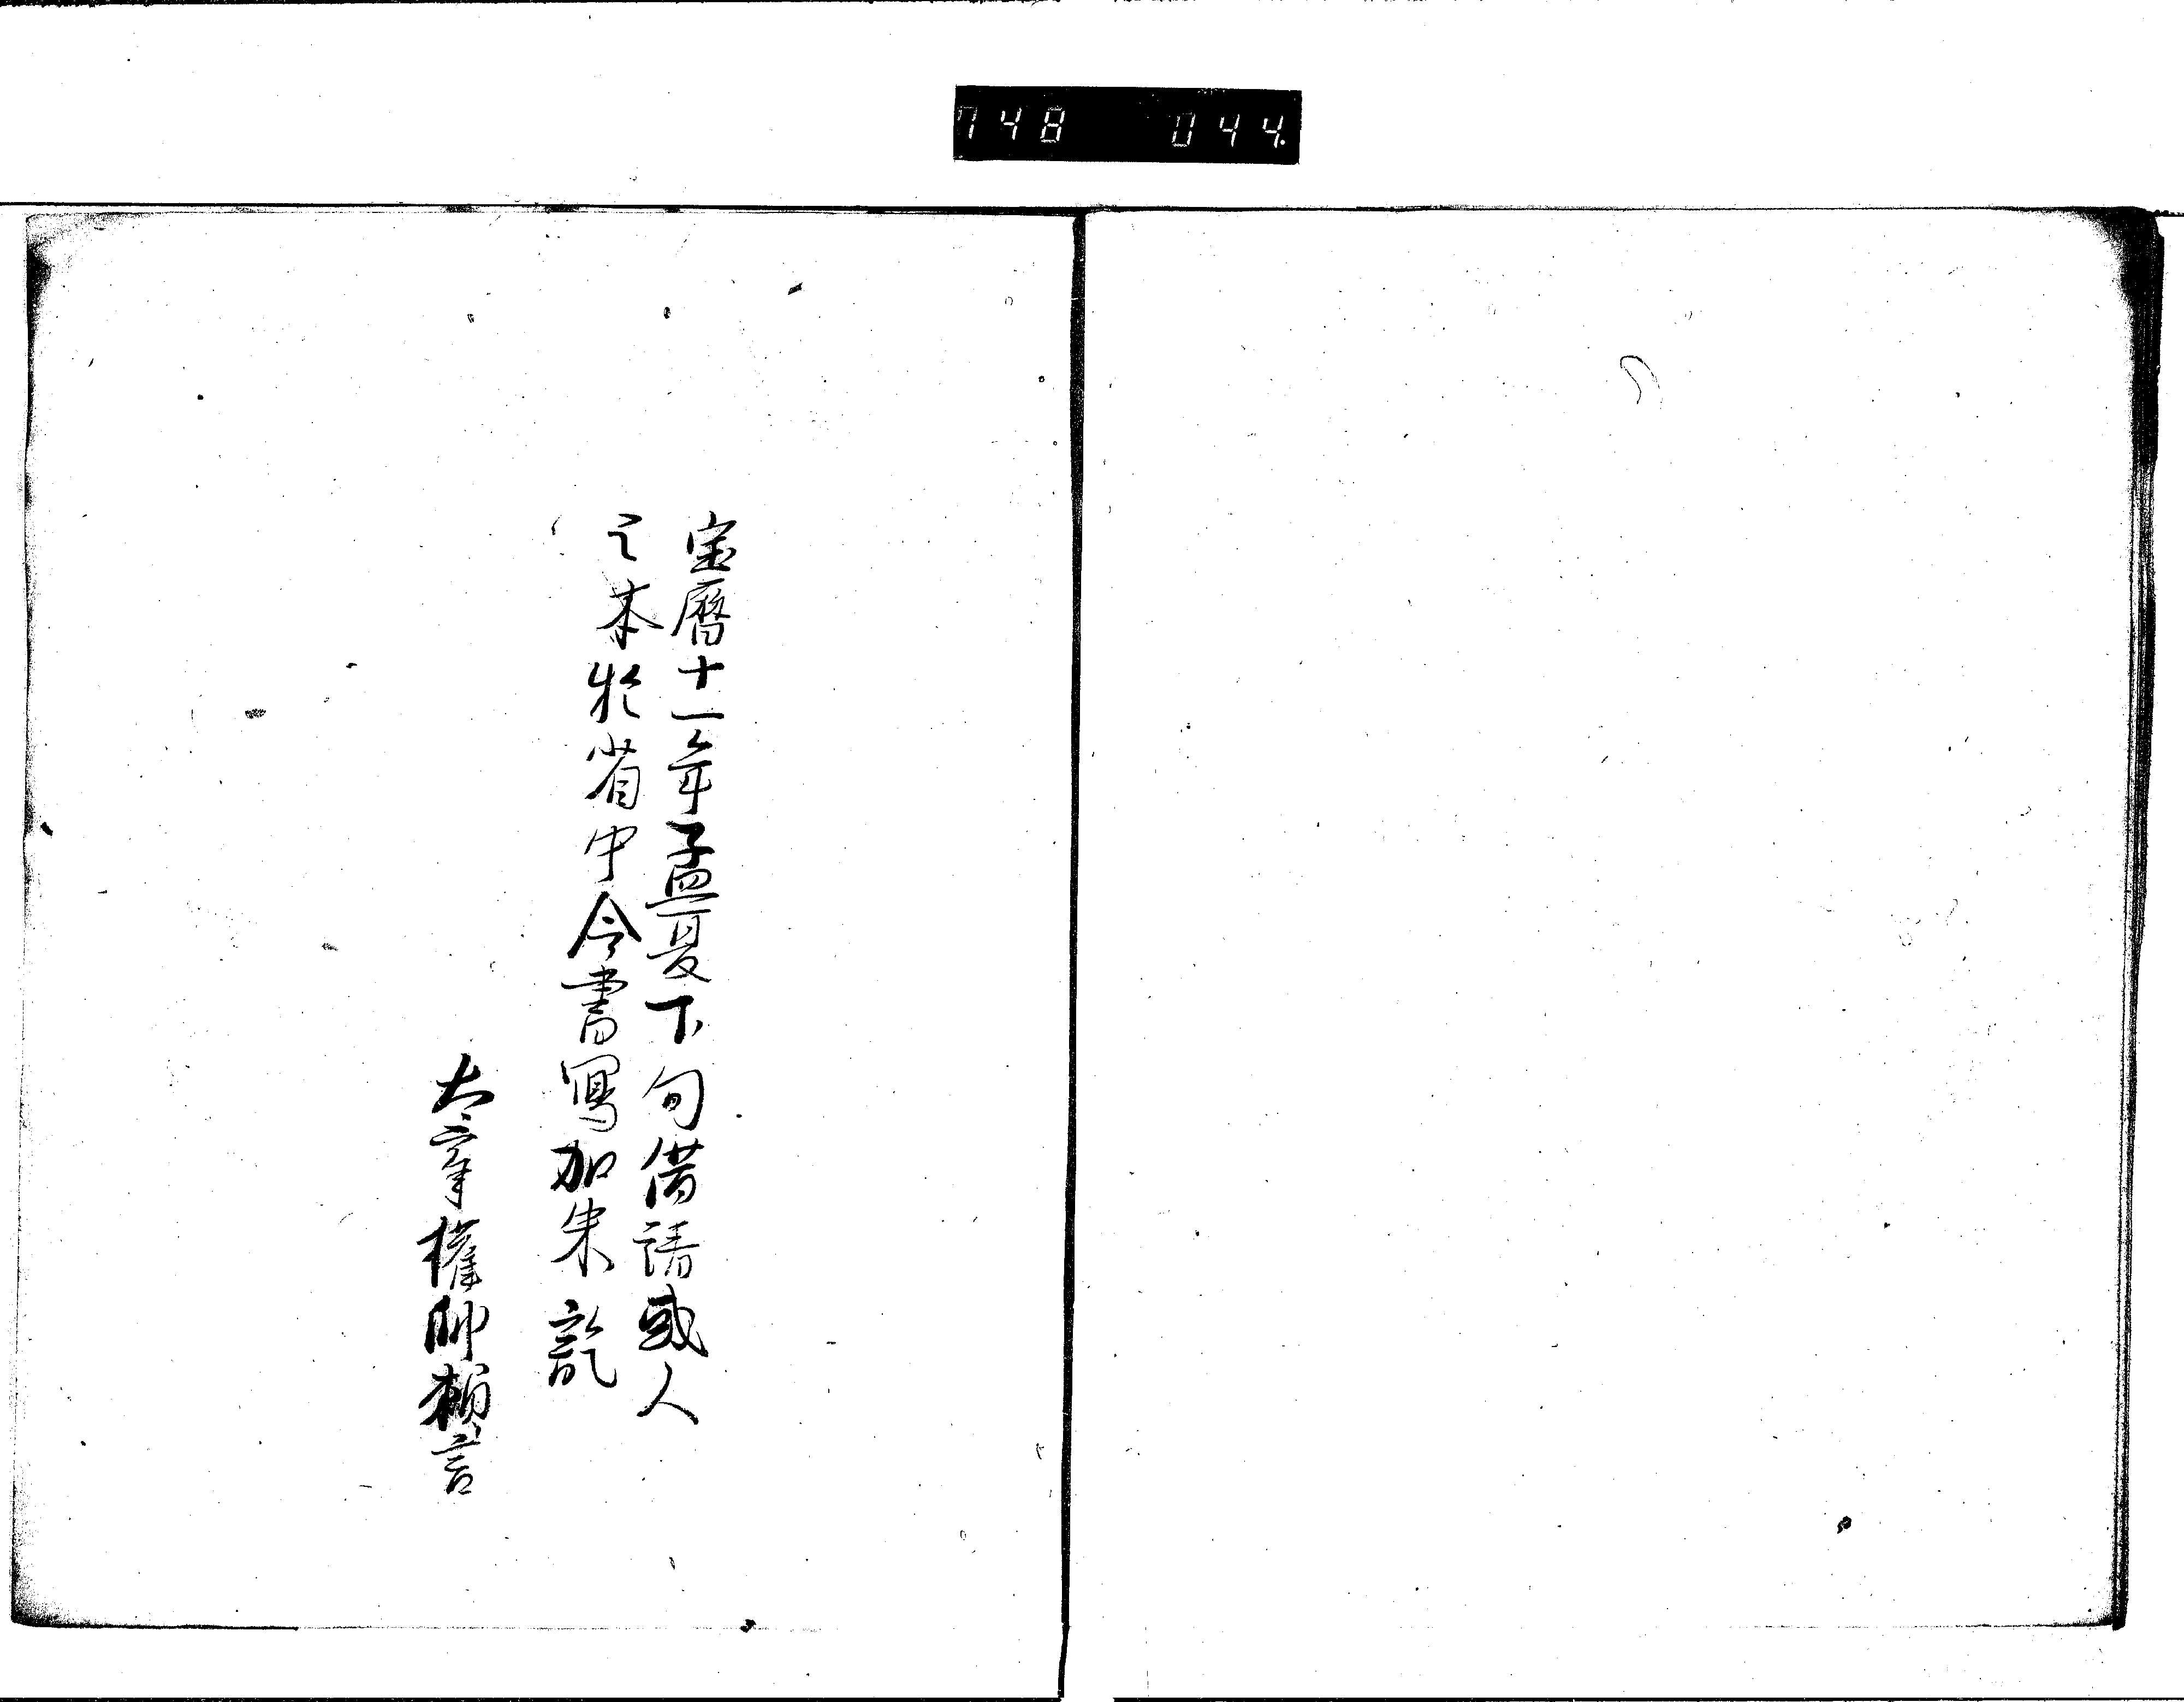 748 044
宝暦十一年孟夏下旬借請或人
之本於省中令書寫加朱訖
太宰權帥頼言